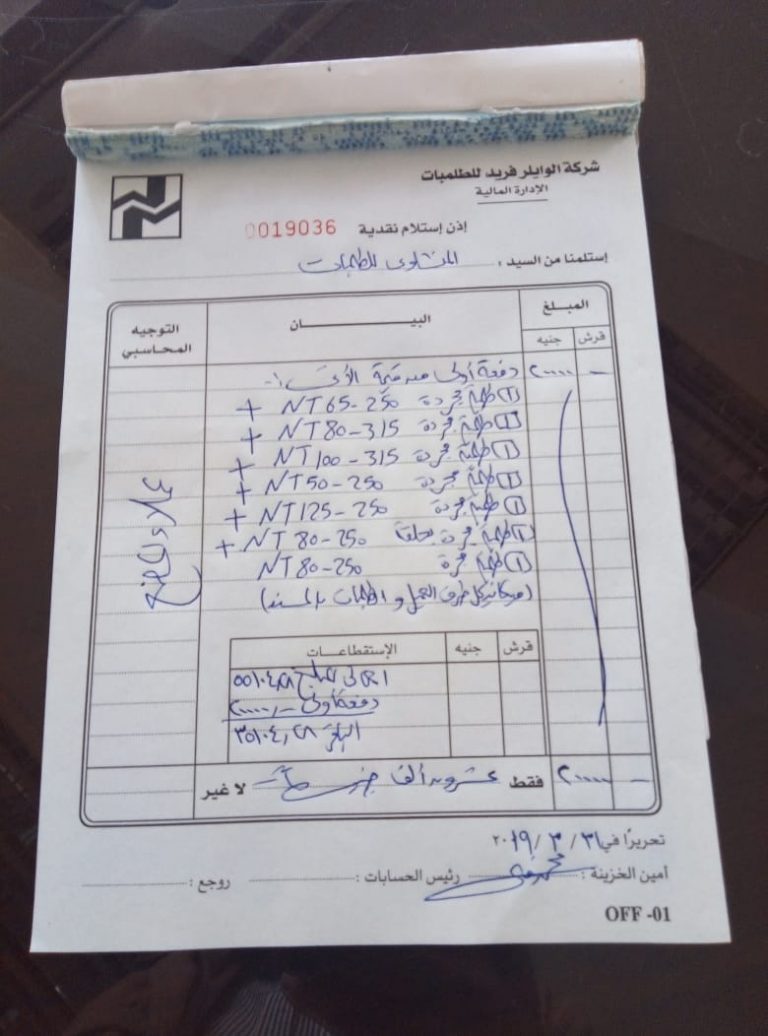 شركة الوايلر فريد للطلمبات
الإدارة المالية
إذن إستلام نقدية 0019036
إستلمنا من السيد : المنشاوى للطلمبات
المبلغ
البيــــان
التوجيه المحاسبي
قرش جنيه
— ٢٠٠٠٠ دفعة أولى من قيمة الآتى :-
(١) طلمبة مجردة NT 65-250 +
(١) طلمبة مجردة NT 80-315 +
(١) طلمبة مجردة NT 100-315 +
(١) طلمبة مجردة NT 50-250 +
(١) طلمبة مجردة NT 125-250 +
طلمبة مجردة NT 80-250 +
(١) طلمبة NT 80-250
طرف العميل و الطلمبات
الإستقطاعــات
قرش جنيه
اجمالى المبلغ ٥٥١٠٤,٢٨
دفعة أولى ٢٠٠٠٠,-
الباقى ٣٥١٠٤,٢٨
— ٢٠٠٠٠ فقط عشرون ألف جنيه لا غير
تحريرًا في ٣١ / ٣ / ٢٠١٩
أمين الخزينة : رئيس الحسابات : روجع :
OFF -01